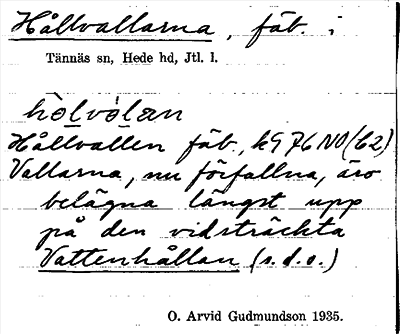 Hållvallarna, fäb. i
Tännäs sn, Hede hd, Jtl. l.
hòlvòlan
Hållvallen fäb., k9 76 NO (b2)
Vallarna, nu förfallna, äro
belägna längst upp
på den vidsträckta
Vattenhållan (s.d.o.)
O. Arvid Gudmundson 1935.